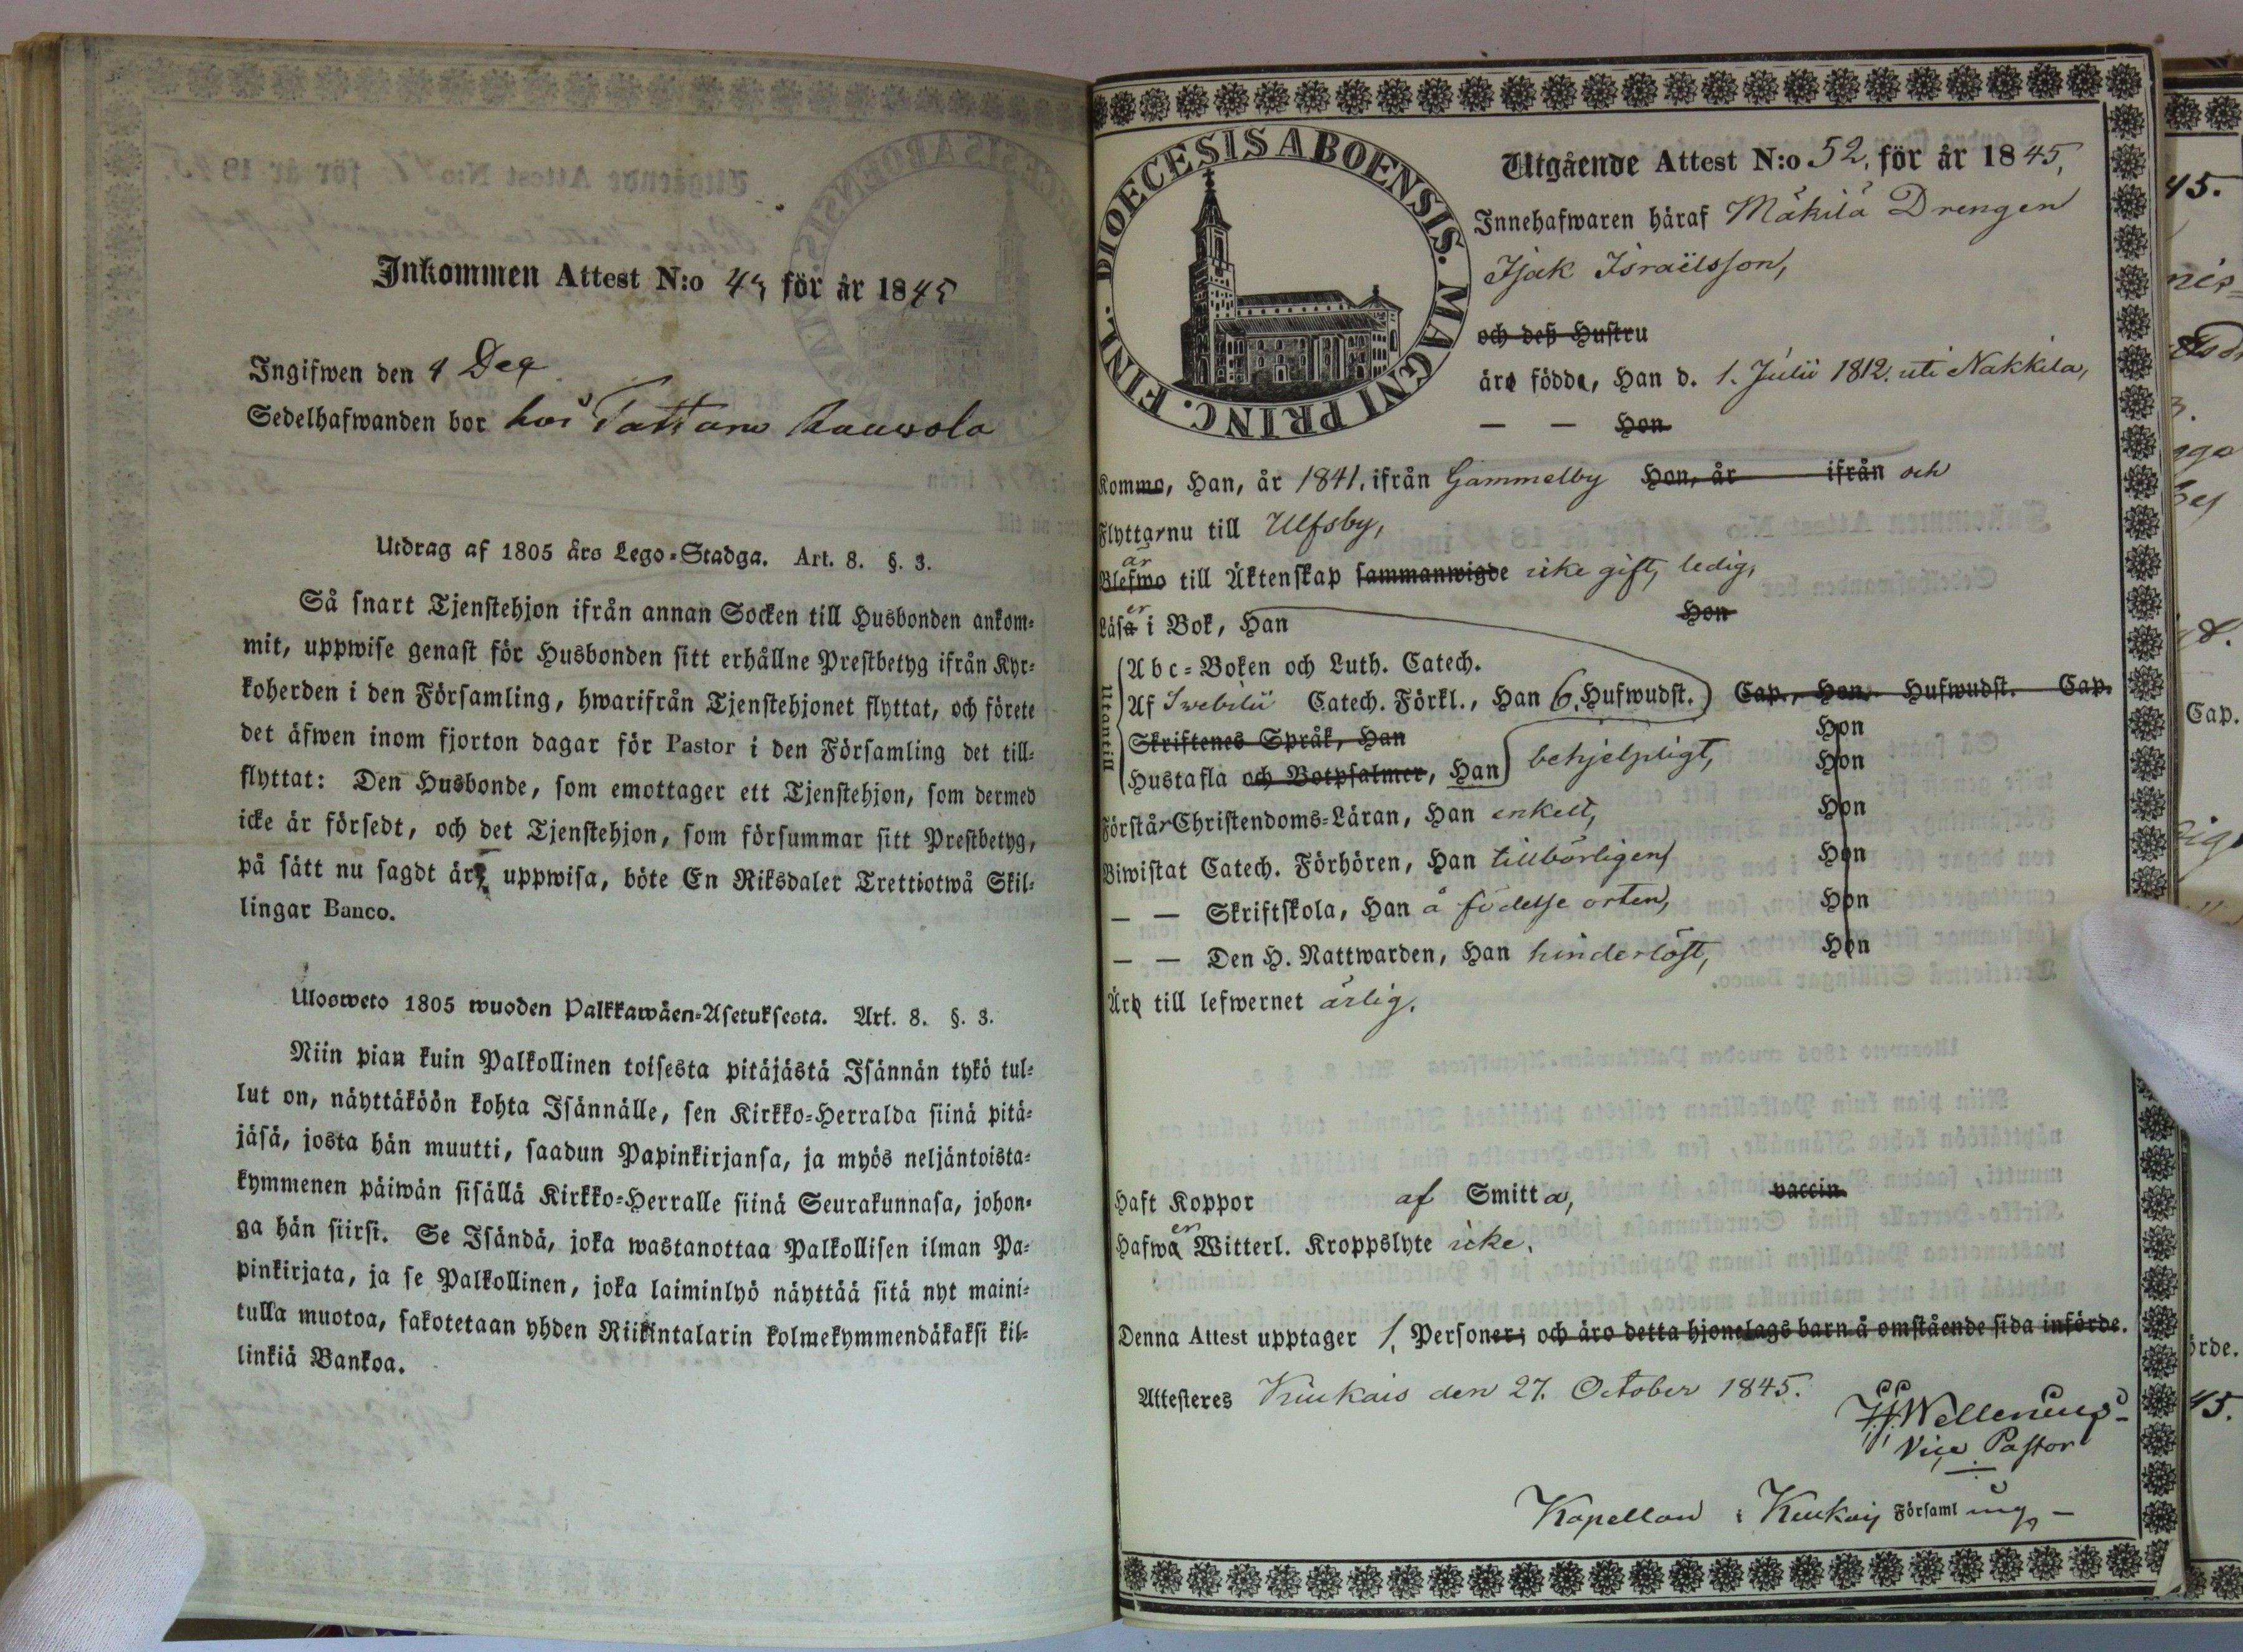 Inkommen Attest N:o 43 för år 1845
Ingifwen den 4 Dec
Sedelhafwanden bor hos Tattara
Utdrag af 1805 års Lego-Stadga. Art. 8. §. 3.
Så snart Tjenstehjon ifrån annan Socken till Husbonden ankom-
mit, uppwise genast för Husbonden sitt erhållne Prestbetyg ifrån Kyr-
koherden i den Församling, hwarifrån Tjenstehjonet flyttat, och förete
det äfwen inom fjorton dagar för Pastor i den Församling det till-
flyttat: Den Husbonde, som emottager ett Tjenstehjon, som dermed
icke är försedt, och det Tjenstehjon, som försummar sitt Prestbetyg,
på sätt nu sagdt är, uppwisa, böte En Riksdaler Trettiotwå Skil-
lingar Banco.
Ulosweto 1805 wuoden Palkkawäen-Asetuksesta. Art. 8. §. 3.
Niin pian kuin Palkollinen toisesta pitäjästä Isännän tykö tul-
lut on, näyttäköön kohta Isännälle, sen Kirkko-Herralda siinä pitä-
jäsä, josta hän muutti, saadun Papinkirjansa, ja myös neljäntoista-
kymmenen päiwän sisällä Kirkko-Herralle siinä Seurakunnasa, johon-
ga hän siirsi. Se Isändä, joka wastanottaa Palkollisen ilman Pa-
pinkirjata, ja se Palkollinen, joka laiminlyö näyttää sitä nyt maini-
tulla muotoa, sakotetaan yhden Riikintalarin kolmekymmendäkaksi kil-
linkiä Bankoa.
DIOECESIS ABOENSIS. MAGNI PRINC. FINL.
Utgående Attest N:o 52, för år 1845,
Innehafwaren häraf Mäkilä Drengen
Isak Israëlsson,
och deß Hustru
äro födde, Han d. 1. Julii 1812. uti Nakkila,
— — Hon
Kommo, Han, år 1841, ifrån Gammelby Hon, år ifrån och
Flyttar nu till Ulfsby,
är
Blefwo till Äktenskap sammanwigde icke gift, ledig,
er
Läsa i Bok, Han Hon
Utantill
Abc-Boken och Luth. Catech.
Af Swebilii Catech. Förkl., Han 6. Hufwudst. Cap., Hon Hufwudst. Cap.
Skriftenes Språk, Han Hon
Hustafla och Botpsalmer, Han behjelpligt, Hon
Förstår Christendoms-Läran, Han enkelt, Hon
Biwistat Catech. Förhören, Han tillbörligen, Hon
— — Skriftskola, Han å födelse orten, Hon
— — Den H. Nattwarden, Han hinderlöst, Hon
Äro till lefwernet ärlig.
Haft Koppor af Smitta, vaccin.
er
Hafwa Witterl. Kroppslyte icke.
Denna Attest upptager 1, Personer; och äro detta hjonelags barn å omstående sida införde.
Attesteres Kiukais den 27. October 1845.
Wellenius
Vice Pastor
Kapellan i Kiukais Församling
45.
Cap.
örde.
45.